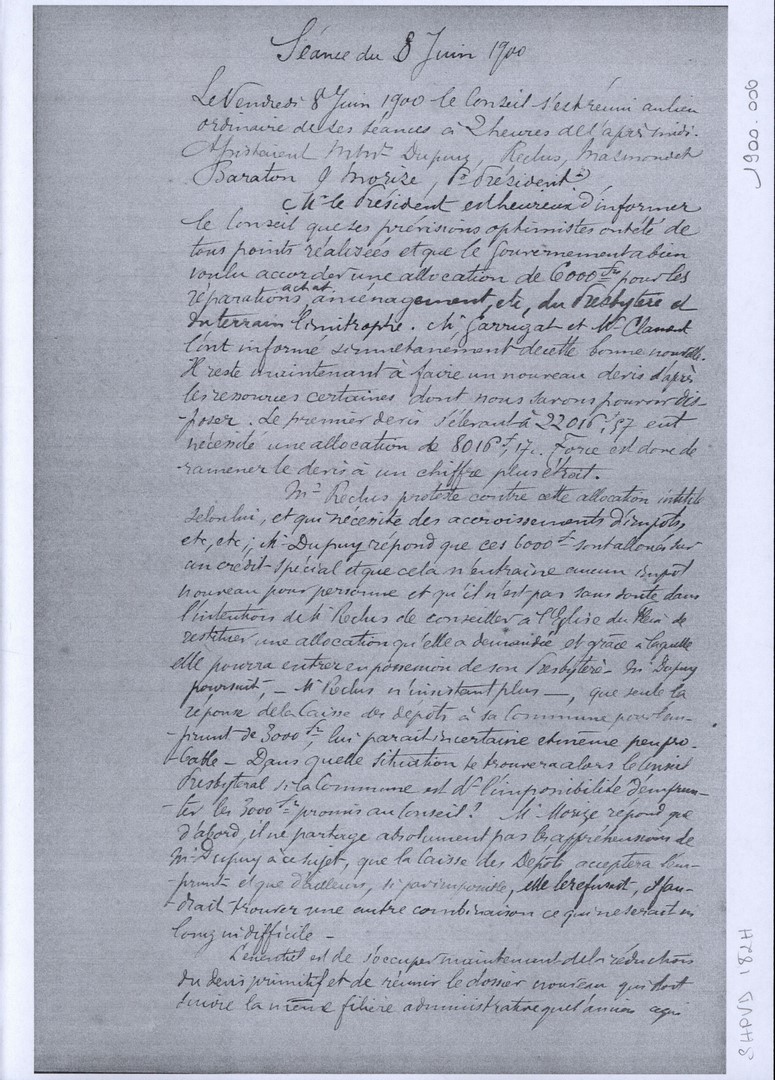 Séance du 8 Juin 1900
Le Vendredi 8 Juin 1900 le Conseil s'est réuni au lieu
ordinaire de ses séances à 2 heures de l'après midi.
Assistaient MMrs Dupuy, Reclus, Masmondet
Baraton & Morize, Pr Président
Mr le Président est heureux d'informer
le Conseil que ses prévisions optimistes ont été de
tous points réalisées et que le Gouvernement a bien
voulu accorder une allocation de 6000 frs pour les
réparations, achat, aménagement, etc, du Presbytère et
du terrain limitrophe. Mr Garrigat et Mr Clament
l'ont informé simultanément de cette bonne nouvelle.
Il reste maintenant à faire un nouveau devis d'après
les ressources certaines dont nous savons pouvoir dis-
-poser. Le premier devis s'élevant à 22016f,57 eut
nécessité une allocation de 8016f,17. Force est donc de
ramener le devis à un chiffre plus étroit.
Mr Reclus proteste contre cette allocation inutile
selon lui, et qui nécessite des accroissements d'impôts,
etc, etc; Mr Dupuy répond que ces 6000 frs sont alloués sur
un crédit spécial et que cela n'entraîne aucun impôt
nouveau pour personne et qu'il n'est pas sans doute dans
l'intention de Mr Reclus de conseiller à l'Eglise du Fleix de
restituer une allocation qu'elle a demandée et grâce à laquelle
elle pourra entrer en possession de son Presbytère - Mr Dupuy
poursuit, - Mr Reclus n'insistant plus -, que seule la
réponse de la Caisse des dépôts à sa Commune pour l'em-
-prunt de 3000 frs, lui paraît incertaine et même peu pro-
-bable - Dans quelle situation se trouvera alors le Conseil
Presbytéral si la Commune est ds l'impossibilité d'emprun-
-ter les 3000 frs promis au Conseil? Mr Morize répond que
d'abord, il ne partage absolument pas les appréhensions de
Mr Dupuy à ce sujet, que la Caisse des Dépôts acceptera l'em-
-prunt et que d'ailleurs, si par impossible, elle le refusait, il fau-
-drait trouver une autre combinaison ce qui ne serait ni
long ni difficile -
L'essentiel est de s'occuper maintenant de la réduction
du devis primitif et de réunir le dossier nouveau qui doit
suivre la même filière administrative que l'ancien
1900.006
SHPVD 182H